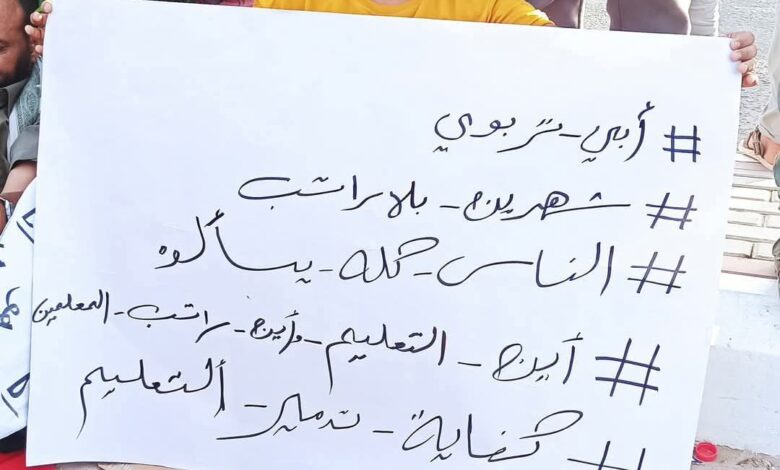 # أبي_تربوي
# شهرين_بلا راتب
# الناس_كله_يسألوه
# أين_التعليم_وأين_راتب_المعلمين
# كفاية_تدمير_ألتعليم